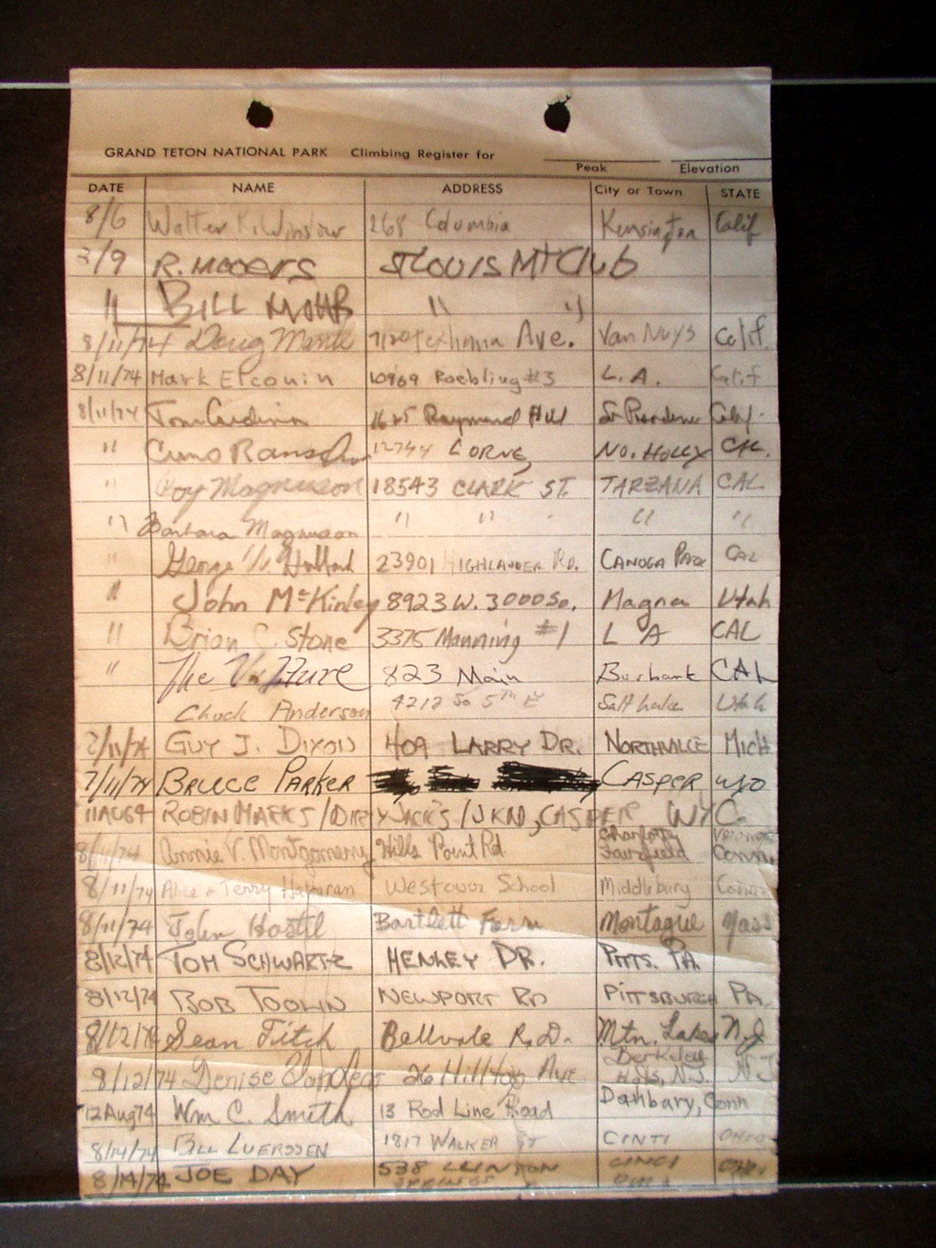 GRAND TETON NATIONAL PARK Climbing Register for
Peak Elevation
DATE NAME ADDRESS City or Town STATE
8/6 Walter P. Winslow 268 Columbia Kensington Calif
/9 R. MOOERS ST LOUIS MT Club
" BILL " "
8/11/74 Doug Ave. Van Nuys Calif.
8/11/74 Mark 10969 Roebling #3 L.A. Calif
8/11/74 Tom Raymond Hill
" 12744 LORNE NO. HOLLY CAL.
" Roy Magnuson 18543 CLARK ST. TARZANA CAL
" Barbara Magnuson " " " "
" George Holland 23901 HIGHLANDER RD. CANOGA PARK CAL
" John McKinley 8923 W. 3000 So. Magna Utah
" Brian C. Stone 3375 Manning #1 L A CAL
" The Vulture 823 Main Burbank CAL
Chuck Anderson 4212 So 5TH E Salt Lake Utah
/11/74 GUY J. DIXON 409 LARRY DR. NORTHVILLE MICH
7/11/74 BRUCE PARKER CASPER WYO
11AUG4 ROBIN MARKS / DIRTY JACK'S / JKN, CASPER WYO.
Charlotte Vermont
8/11/74 Annie V. Montgomery Hills Point Rd Fairfield Conn.
8/11/74 Alice & Terry Westover School Middlebury Conn
8/11/74 John Bartlett Farm Montague Mass
8/12/74 TOM SCHWARTZ HENLEY DR. PITTS. PA
8/12/74 BOB NEWPORT RD PITTSBURGH PA.
8/12/74 Sean Fitch Bellvale R.D. Mtn. Lakes N.J
Berkeley
8/12/74 Denise 26 Hilltop Ave Hgts, N.J. N.J
12Aug74 Wm C. Smith 13 Rod Line Road Danbury, Conn
8/14/74 BILL LUERSSEN 1817 WALKER ST CINTI OHIO
8/14/74 JOE DAY 538 CLINTON CINCI
SPRINGS